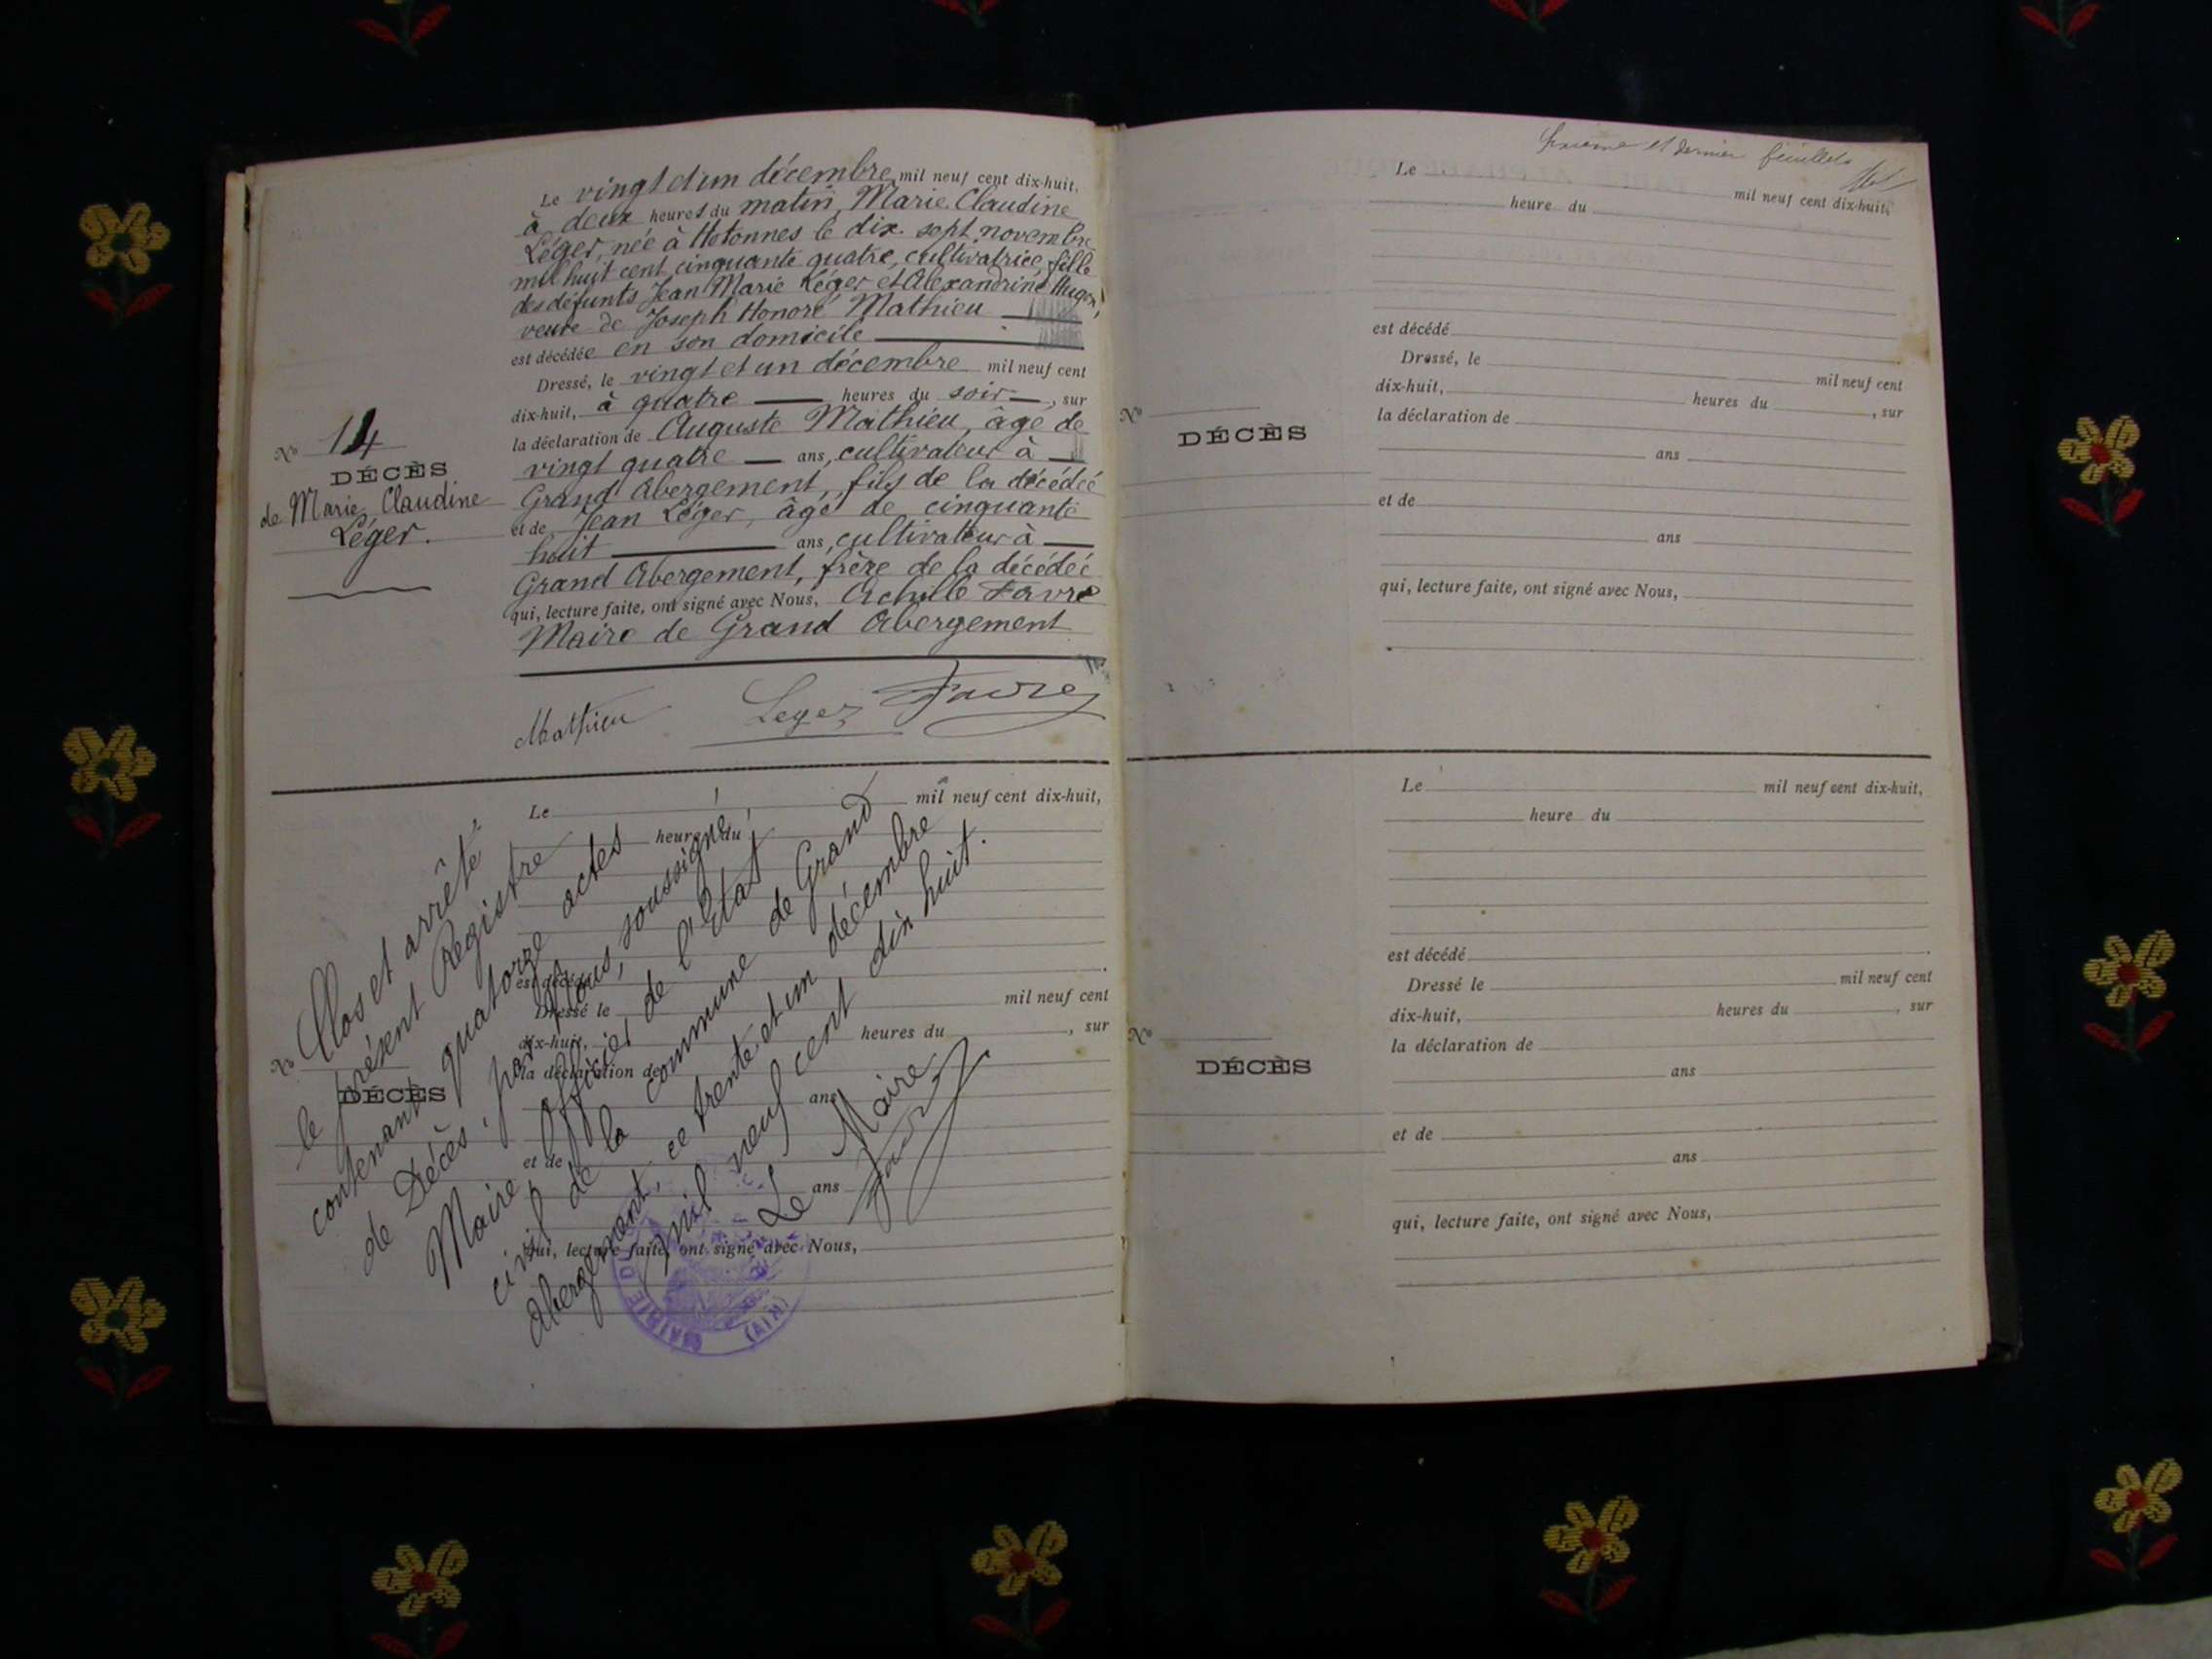 Le vingt et un décembre mil neuf cent dix-huit,
à deux heures du matin Marie Claudine
Léger, née à Hotonnes le dix sept novembre
mil huit cent cinquante quatre, cultivatrice, fille
des défunts Jean Marie Léger et Alexandrine Hugon,
veuve de Joseph Honoré Mathieu
est décédée en son domicile
Dressé, le vingt et un décembre mil neuf cent
dix-huit, à quatre heures du soir, sur
la déclaration de Auguste Mathieu, âgé de
vingt quatre ans, cultivateur à
Grand Abergement, fils de la décédée
et de Jean Léger, âgé de cinquante
huit ans, cultivateur à
Grand Abergement, frère de la décédée
qui, lecture faite, ont signé avec Nous, Achille Favre
Maire de Grand Abergement
No 14
DÉCÈS
de Marie Claudine
Léger.
Mathieu Leger Favre
Le mil neuf cent dix-huit,
heure du
est décédé
Dressé le mil neuf cent
dix-huit, heures du , sur
la déclaration de
ans
et de
ans
qui, lecture faite, ont signé avec Nous,
No
DÉCÈS
Clos et arrêté
le présent Registre
contenant quatorze actes
de Décès, par Nous, soussigné,
Maire Officier de l'Etat
civil de la commune de Grand
Abergement, ce trente et un décembre
mil neuf cent dix huit.
Le Maire
Favre
MAIRIE DU
(AIN)
et dernier feuillet
Le mil neuf cent dix-huit,
heure du
est décédé
Dressé, le mil neuf cent
dix-huit, heures du , sur
la déclaration de
ans
et de
ans
qui, lecture faite, ont signé avec Nous,
No
DÉCÈS
Le mil neuf cent dix-huit,
heure du
est décédé
Dressé le mil neuf cent
dix-huit, heures du , sur
la déclaration de
ans
et de
ans
qui, lecture faite, ont signé avec Nous,
No
DÉCÈS